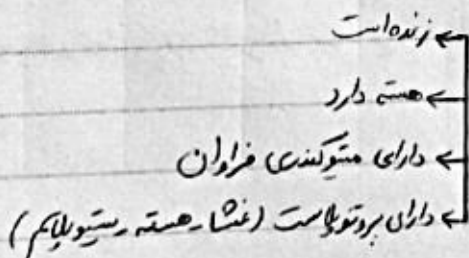 ← زنده است
← هسته دارد
← دارای میتوکندری فراوان
← دارای پروتوپلاست (غشا - هسته - سیتوپلاسم)